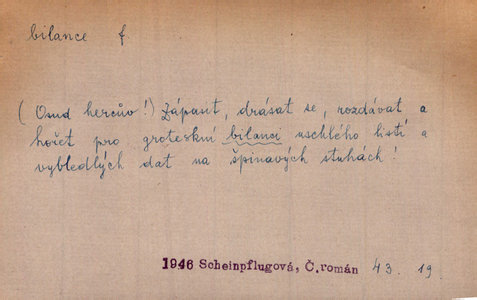 bilance f.
( Osud hercův! ) Zápasit, drásat se, rozdávat a
hořet pro groteskní bilanci uschlého listí a
vybledlých dat na špinavých stuhách!
1946 Scheinpflugová, Č. román 43. 19.